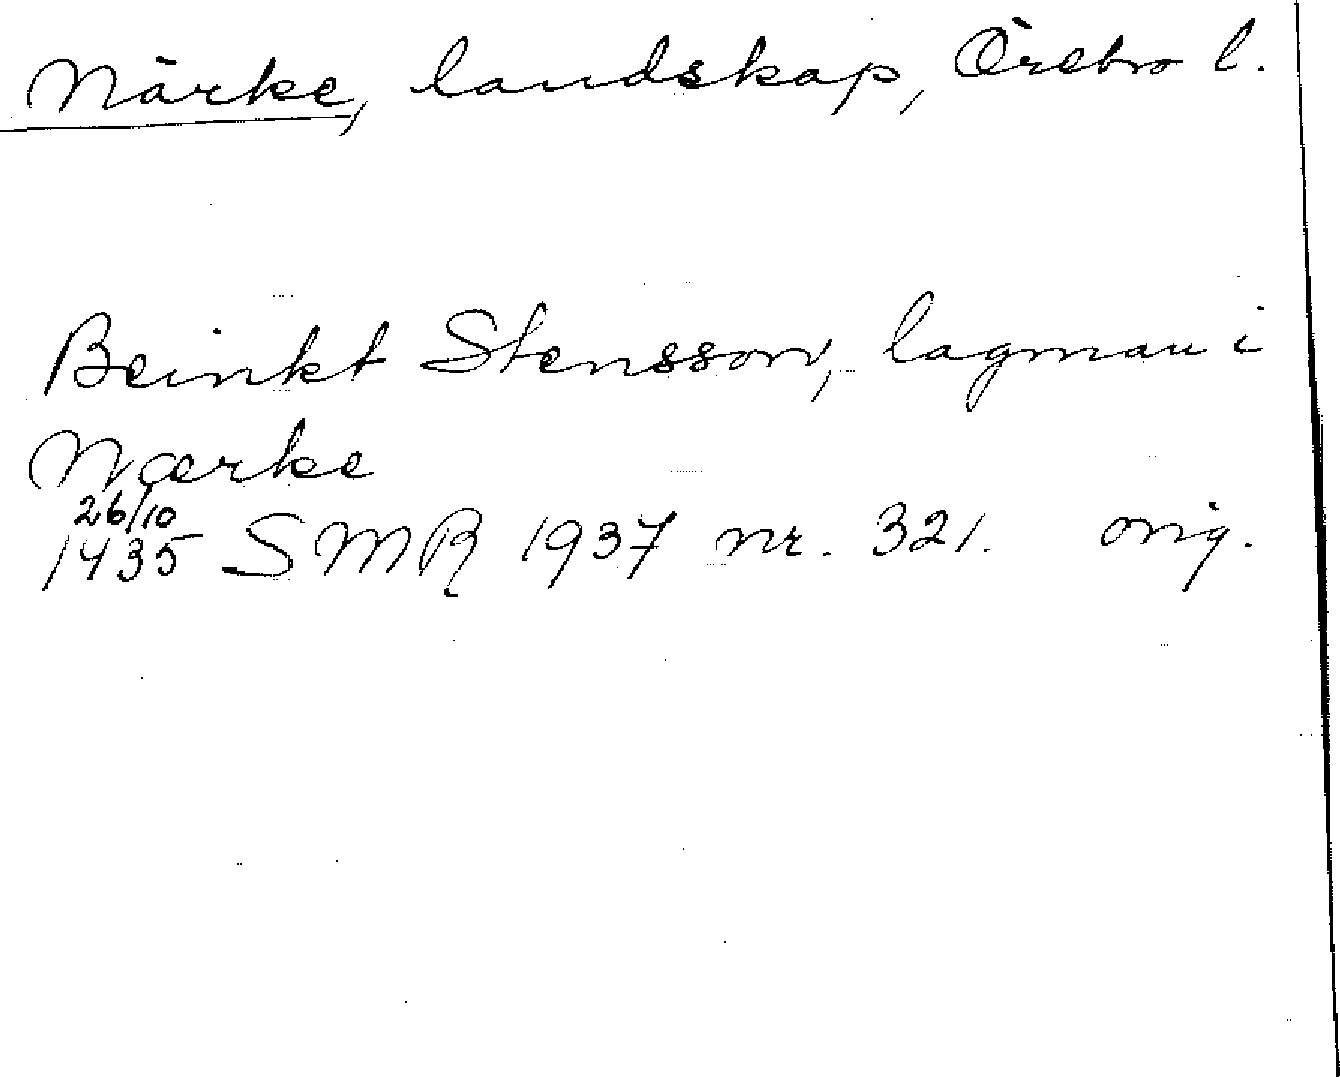 Närke, landskap, Örebro l.
Beinkt Stensson, lagman i
Nærke
26/10
1435 SMR 1937 nr. 321. orig.